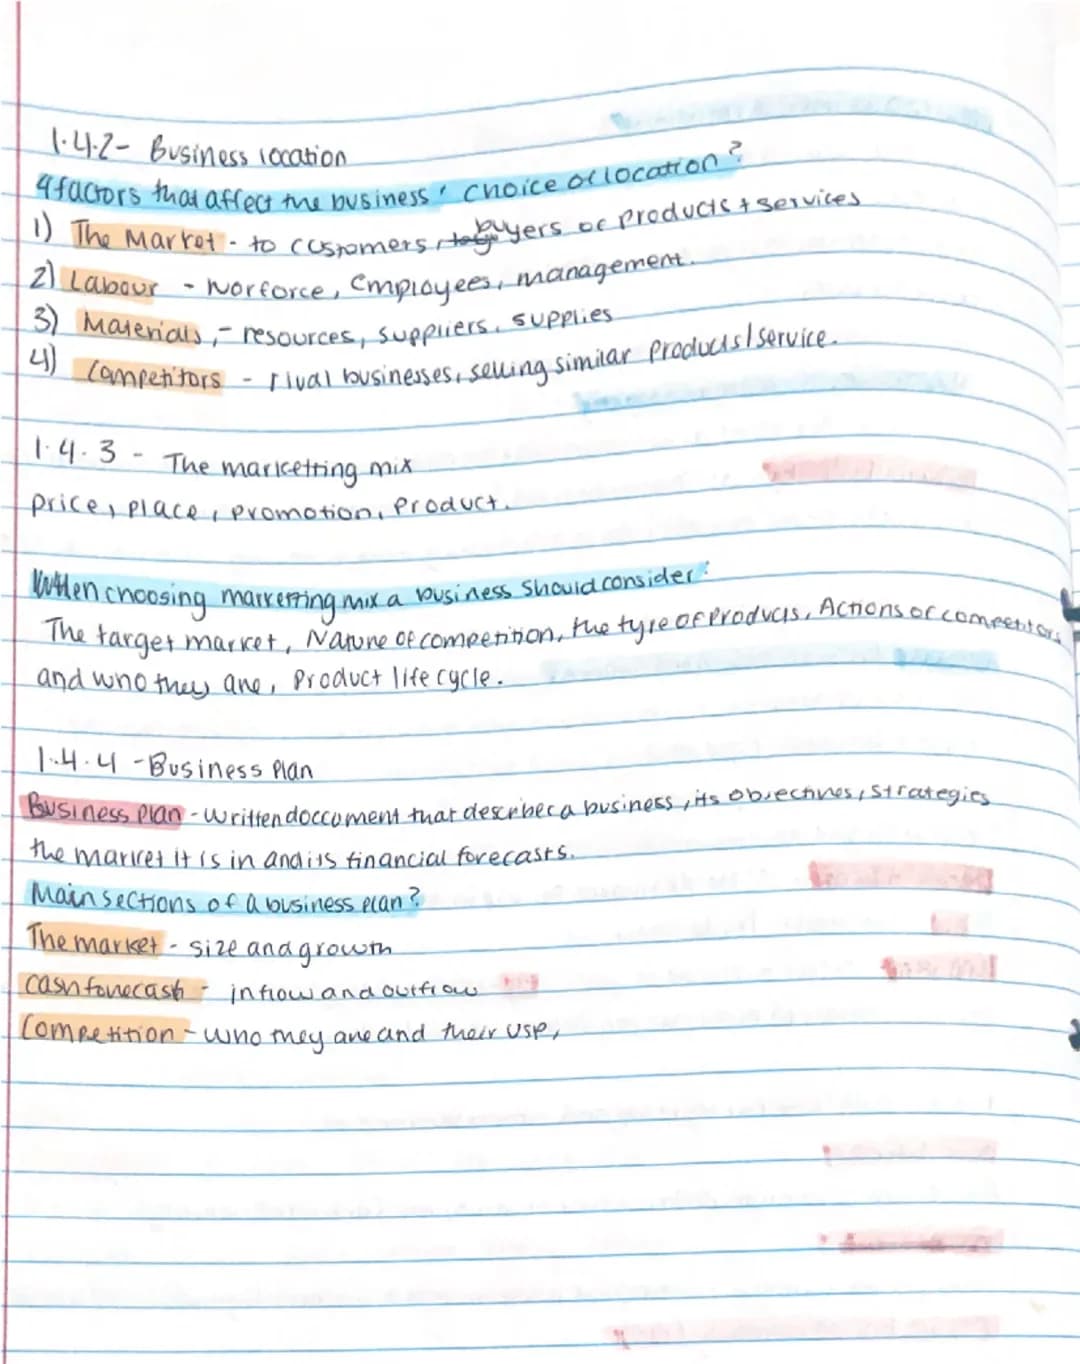 1.4.2- Business location
4 factors that affect the business' choice of location?
1) The Market - to customers, buyers of products + services
2) Labour - worforce, Employees, management.
3) Materials, - resources, suppliers, supplies
4) Competitors - rival businesses, selling similar products/service.
1.4.3 - The marketting mix
price, place, promotion, Product.
When choosing marketting mix a business should consider:
The target market, Nature of competition, the type of Products, Actions of competitors
and who they are, Product life cycle.
1.4.4 - Business Plan
Business plan - written doccument that describe a business, its objectives, strategies
the market it is in and its financial forecasts.
Main sections of a business plan?
The market - size and growth
Cash forecast - inflow and outflow
Competition - who they are and their USP,